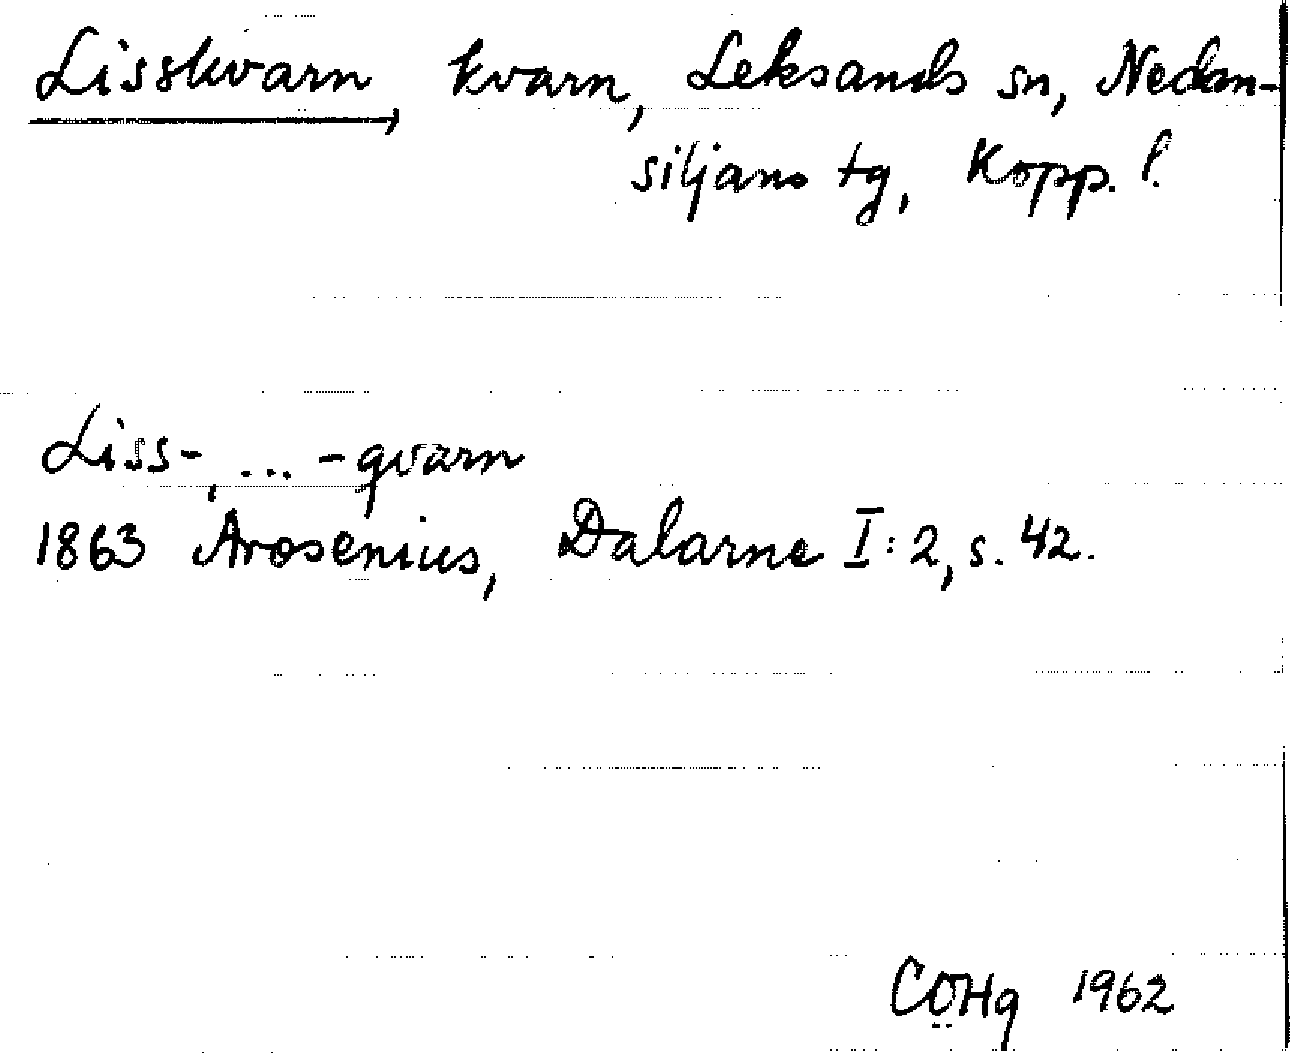 Lisskvarn, kvarn, Leksands sn, Nedan-
siljans tg, Kopp. l.
Liss-, ... -qvarn
1863 Arosenius, Dalarne I:2, s. 42.
COHg 1962